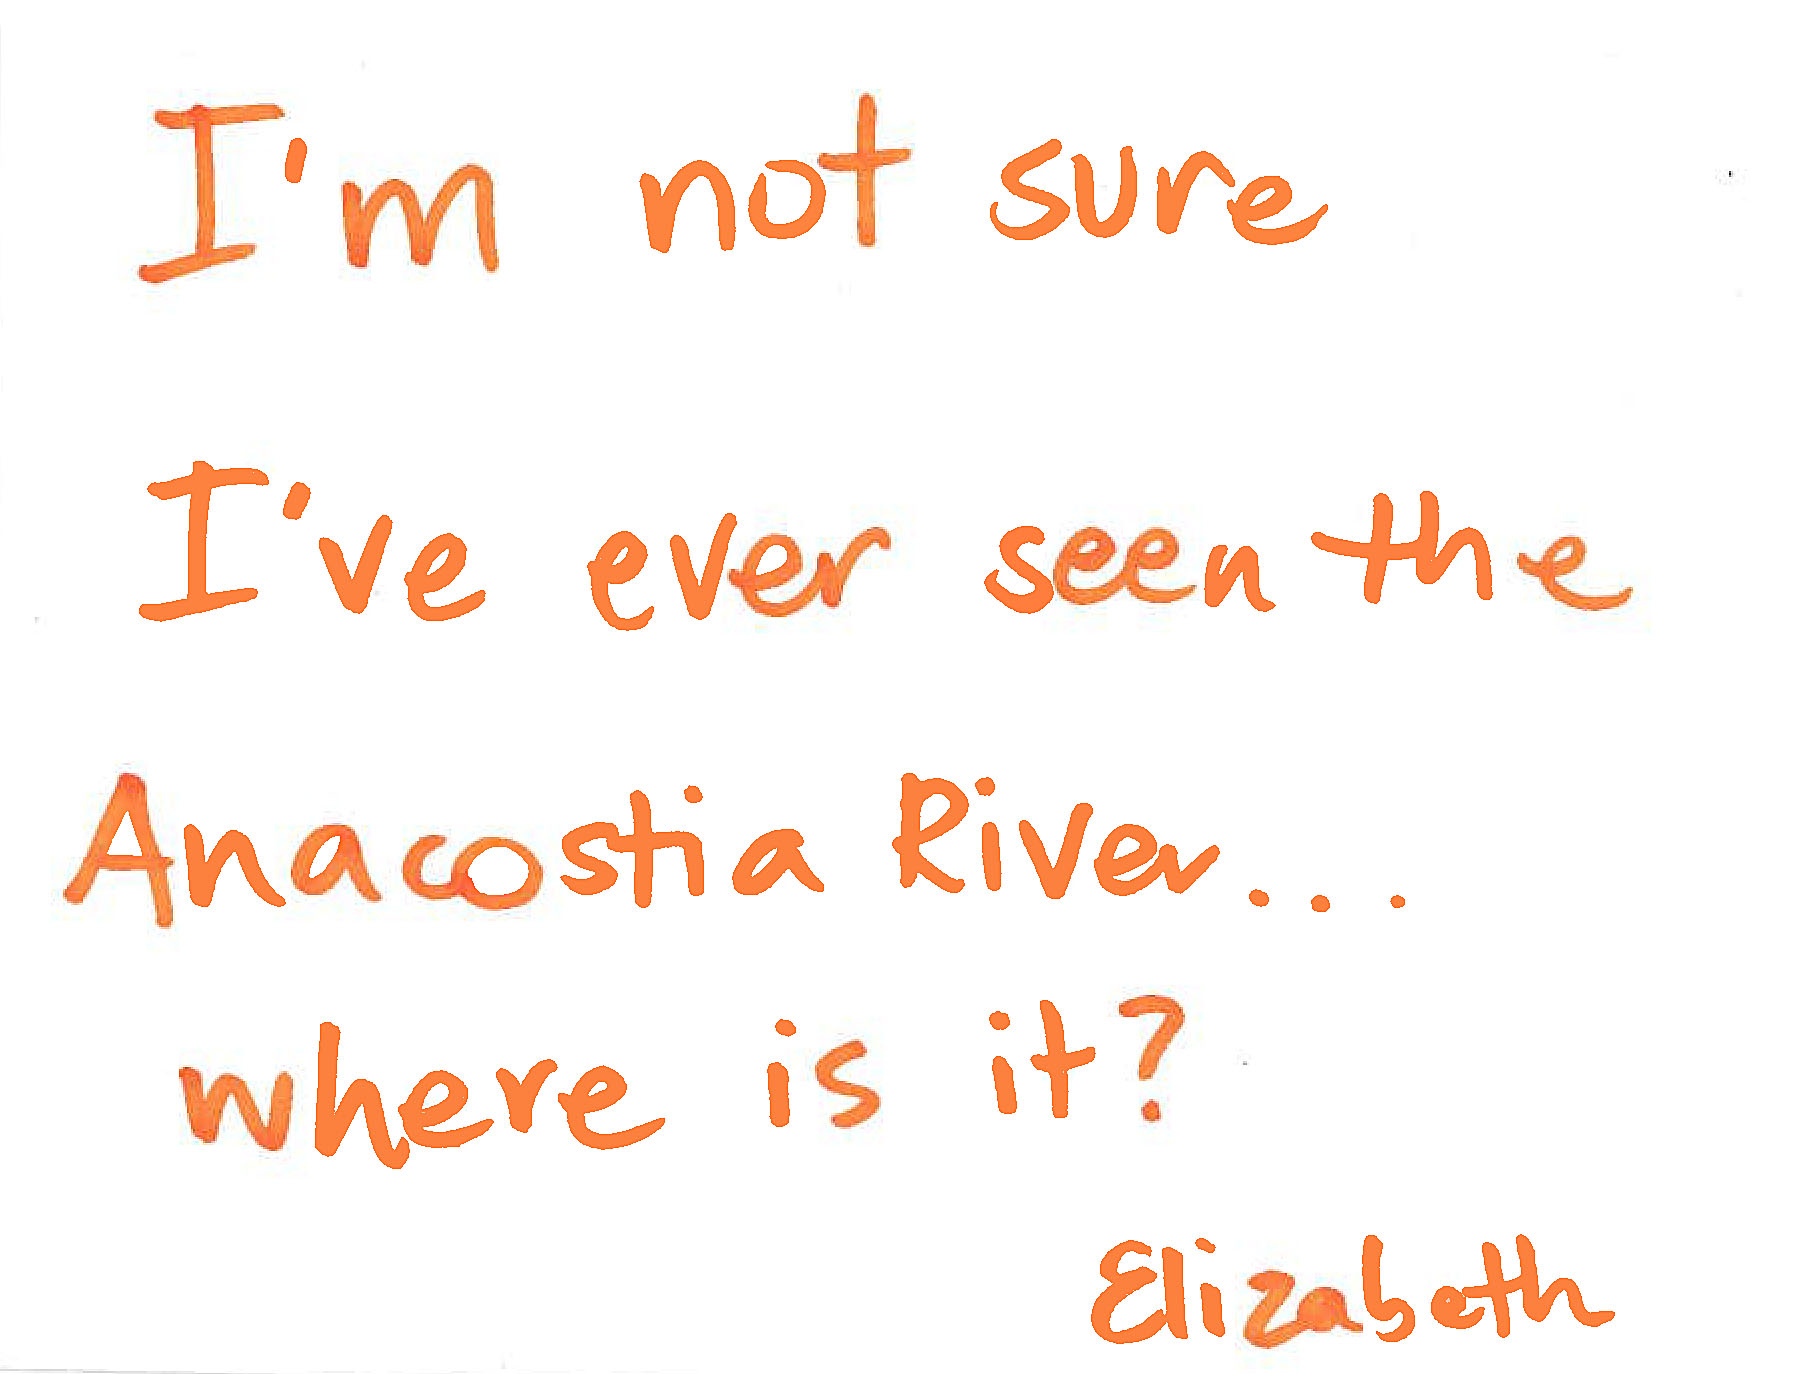 I'm not sure
I've ever seen the
Anacostia River...
where is it?
Elizabeth